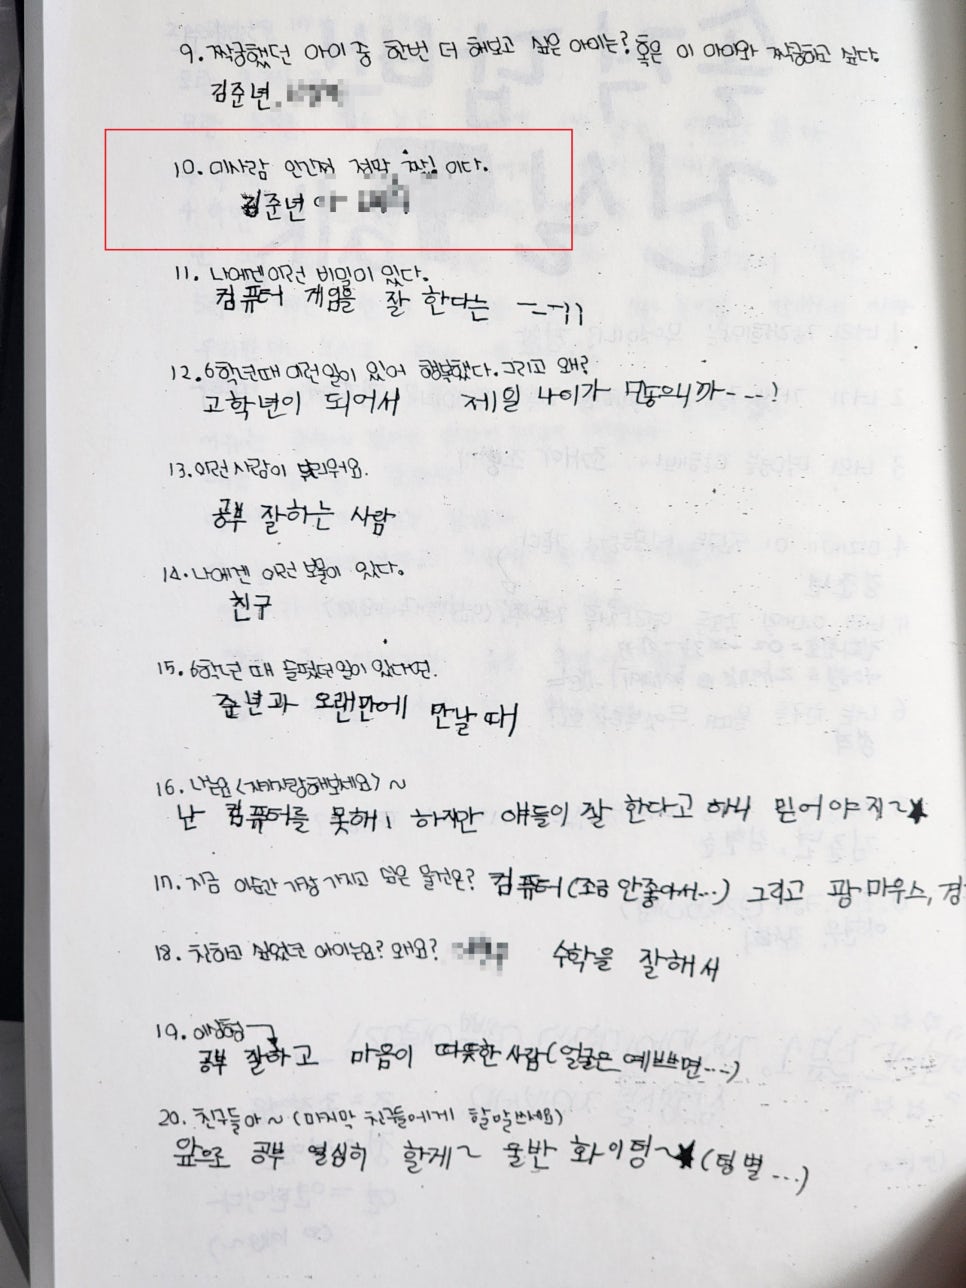 9. 짝궁했던 아이 중 한번 더 해보고 싶은 아이는? 혹은 이 아이와 짝궁하고 싶다.
김준년,
10. 이사람 인간성 정말 짱! 이다.
김준년
11. 나에겐 이런 비밀이 있다.
컴퓨터 게임을 잘 한다는 ㅡㅡ;;
12. 6학년때 이런일이 있어 행복했다. 그리고 왜?
고학년이 되어서 제일 나이가 많으니까---!
13. 이런 사람이 부러워요.
공부 잘하는 사람
14. 나에겐 이런 보물이 있다.
친구
15. 6학년 때 슬펐던 일이 있다면.
준년과 오랜만에 만날 때
16. 나는요 <자기자랑해보세요> ~
난 컴퓨터를 못해! 하지만 얘들이 잘 한다고 하니 믿어야지~★
17. 지금 이순간 가장 가지고 싶은 물건은? 컴퓨터(조금 안좋아서...) 그리고 광마우스,
18. 친하고 싶었던 아이는요? 왜요? 수학을 잘해서
19. 이상형
공부 잘하고 마음이 따뜻한 사람(얼굴은 예쁘면...)
20. 친구들아 ~ (마지막 친구들에게 할말쓰세요)
앞으로 공부 열심히 할게~ 울반 화이팅~★(팅별...)